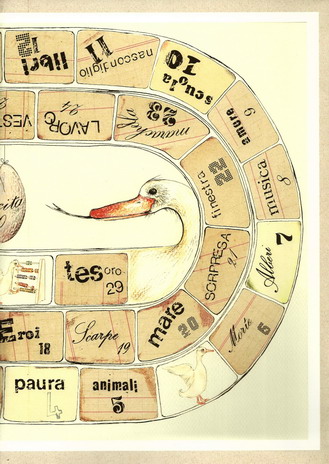 libri
12
nascondiglio
11
scuola
10
amore
9
VEST
LAVORO
24
23
musica
8
finestra
22
Alberi
7
SORPRESA
21
tesoro
29
mare
20
Morte
6
eroi
18
Scarpe
19
paura
4
animali
5